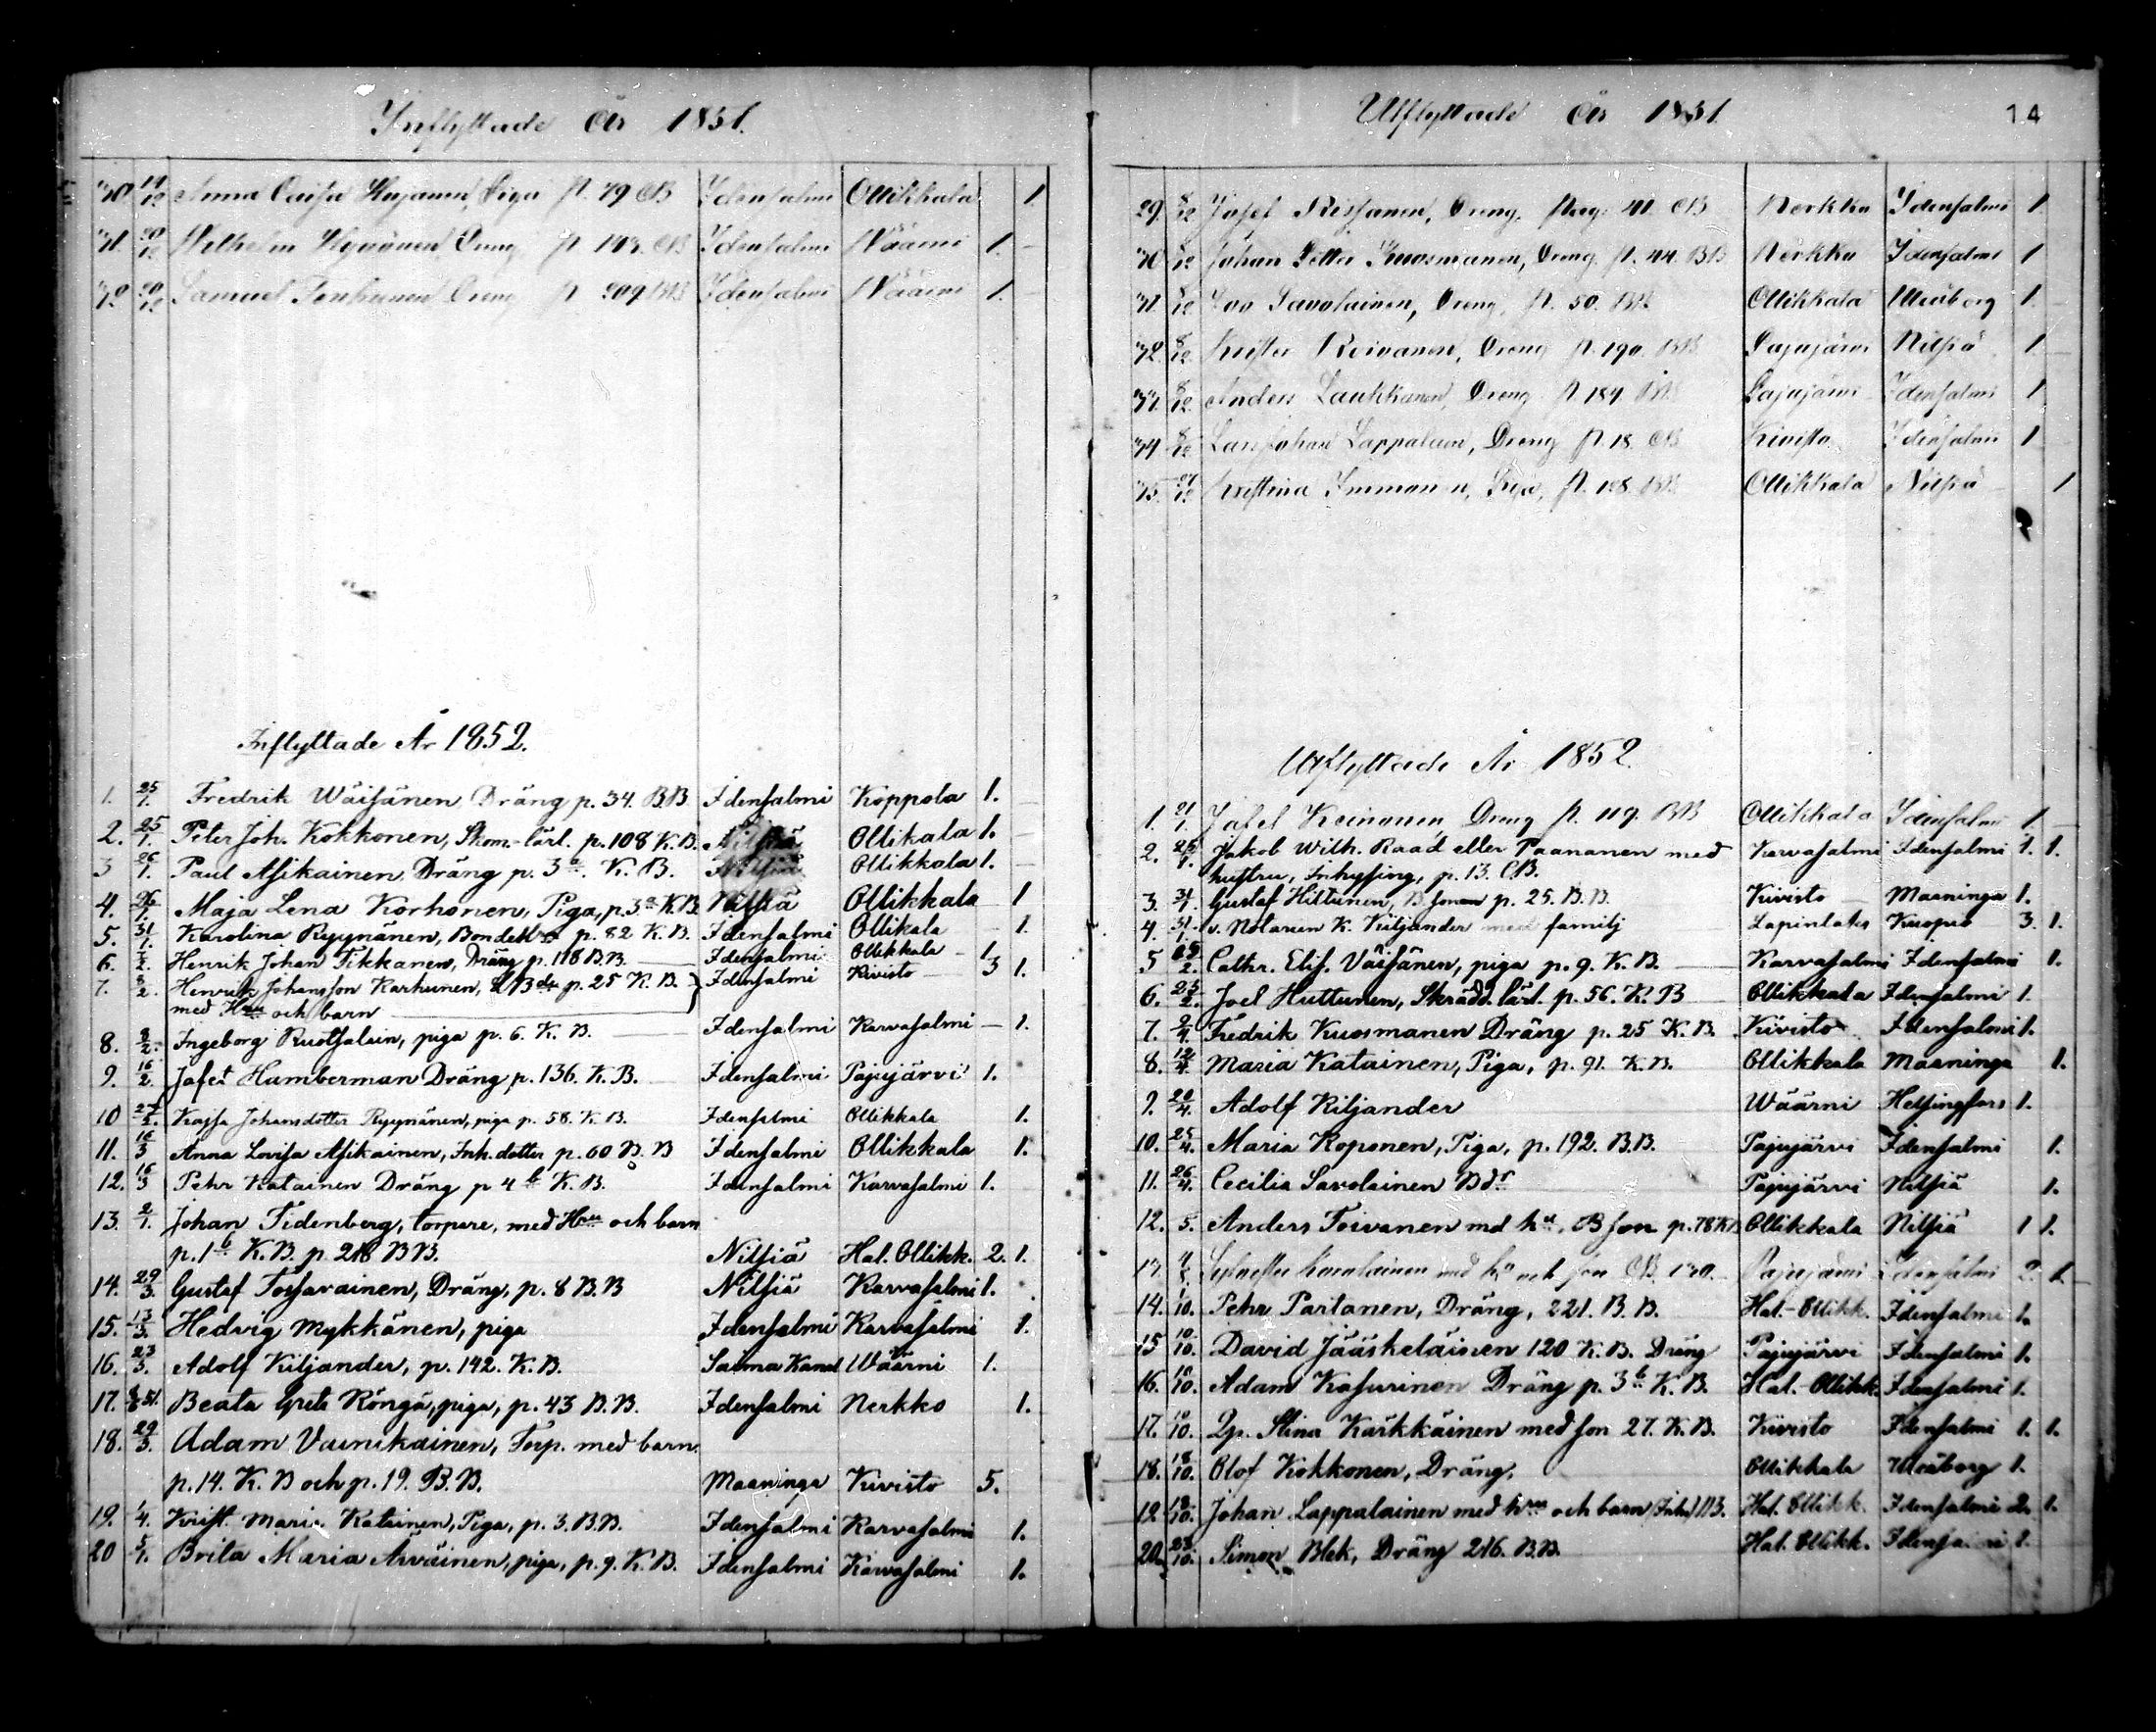 Inflyttade År 1851.
30 14/12 Anna Lovisa Hujanen, Piga p. 79 BB Idensalmi Ollikkala 1.
31. 20/12 Wilhelm Ryynänen, Dreng p. 143. BB Idensalmi Wäärni 1.
32. 20/12 Samuel Tenhunen, Dreng p. 209 BB Idensalmi Wäärni 1.
Inflyttade År 1852.
1. 25/1. Fredrik Wäisänen, Dräng p. 34. BB Idensalmi Koppola 1.
2. 25/1. Peter Joh. Kokkonen, Skom.-lärl. p. 108 K.B. Nilsiä Ollikala 1.
3 26/1. Paul Asikainen, Dräng p. 3a. K.B. Nilsiä Ollikkala 1.
4. 26/1. Maja Lena Korhonen, Piga, p. 3a K.B. Nilsiä Ollikkala 1
5. 31/1. Karolina Ryynänen, Bondedtr p. 82 K.B. Idensalmi Ollikala 1.
6. 1/2. Henrik Johan Tikkanen, Dräng p. 118 B.B. Idensalmi Ollikkala 1.
7. 8/2. Henrik Johansson Karhunen, p. 25 K.B. Idensalmi Kivisto 3 1.
med Hu och barn
8. 8/2. Ingeborg Ruotsalain, piga p. 6. K.B. Idensalmi Karvasalmi 1.
9. 16/2. Jafet Humberman Dräng p. 136. K.B. Idensalmi Pajujärvi 1.
10 27/2. Kajsa Johansdotter Ryynänen, piga p. 58. K.B. Idensalmi Ollikkala 1.
11. 16/3 Anna Lovisa Asikainen, Inh. dotter p. 60 B.B Idensalmi Ollikkala 1.
12. 16/3 Pehr Katainen Dräng p 4b K.B. Idensalmi Karvasalmi 1.
13. 2/1. Johan Tidenberg, torpare, med Hu och barn
p. 1b K.B. p. 218 BB. Nilsiä Hal. Ollikk. 2. 1.
14. 29/3. Gustaf Tossavainen, Dräng, p. 8 B.B Nilsiä Karvasalmi 1.
15. 13/3. Hedvig Mykkänen, piga Idensalmi Karvasalmi 1.
16. 23/3. Adolf Kiljander, p. 142. K.B. Saima Kanal Wäärni 1.
17. Beata Greta Röngä, piga, p. 43 B.B. Idensalmi Nerkko 1.
18. 29/3. Adam Vainikainen, Torp. med barn.
p. 14. K.B och p. 19. B.B. Maaninga Kivisto 5.
19. 1/4. Krist. Maria Katainen, Piga, p. 3. B.B. Idensalmi Karvasalmi 1.
20 5/1. Brita Maria Arväinen, piga, p. 9. K.B. Idensalmi Karvasalmi 1.
Utflyttade År 1851. 14
29. 8/12 Josef Rissanen, Dreng, pag. 41. BB Nerkko Idensalmi 1
30 8/12 Johan Petter Kuosmanen, Dreng. p. 44. BB Nerkko Idensalmi 1
31. 8/12 Savolainen, Dreng, p. 50. BB. Ollikkala Uleåborg 1.
32. 8/12. Krister Roivanen, Dreng p. 190. BB Pajujärvi Nilsiä 1.
33. 8/12. Anders Laukkanen, Dreng p. 184. BB Pajujärvi Idensalmi 1
34 8/12 Lars Johan Lappalain, Dreng p. 18. BB Kivisto Idensalmi 1
35. 27/12 Kristina Immonen, Piga, p. 128. BB Ollikkala Nilsiä 1
Utflyttade År 1852.
1. 21/1. Josef Keinonen, Dreng p. 119. BB Ollikkala Idensalmi 1
2. 25/1. Jakob Wilh. Raad eller Paananen med Karvasalmi Idensalmi 1. 1.
hustru, Inhysing, p. 13. BB.
3. 31/1. Gustaf Hiltunen, B.sonen p. 25. B.B. Kivisto Maaninga 1.
4. 31/1. v. Notarien K. Kiljander med familj Lapinlaks Kuopio 3. 1.
5 Cathr. Elis. Väisänen, piga p. 9. K.B. Karvasalmi Idensalmi 1.
6. 23/2. Joel Huttunen, Skrädd. lärl. p. 56. K.B Ollikkala Idensalmi 1.
7. 2/4. Fredrik Kuosmanen Dräng p. 25 K.B. Kivisto Idensalmi 1.
8. 12/4. Maria Katainen, Piga, p. 91. K.B. Ollikkala Maaninga 1.
9. 20/4. Adolf Kiljander Wäärni Helsingfors 1.
10. 25/4. Maria Koponen, Piga, p. 192. B.B. Pajujärvi Idensalmi 1.
11. 26/4. Cecilia Savolainen Bdr Pajujärvi Nilsiä 1.
12. 5. Anders Toivanen md hu, B son p. 78 KB Ollikkala Nilsiä 1 1.
13. Sylvester Kavalainen med hu och son BB. 130. Pajujärvi Idensalmi 2. 1.
14. 1/10. Pehr Partanen, Dräng, 221. B.B. Hal.-Ollikk. Idensalmi 1.
15 10/10. David Jääskeläinen 120 K.B. Dräng Pajujärvi Idensalmi 1.
16. 10/10. Adam Kasurinen Dräng p. 3b K.B. Hal.-Ollikk. Idensalmi 1.
17. 10/10. Qp. Stina Kärkkäinen med son 27. K.B. Kivisto Idensalmi 1. 1.
18. 18/10. Olof Kokkonen, Dräng. Ollikkala Uleåborg 1.
19 18/10. Johan Lappalainen med hu och barn (Inh.) BB. Hal. Ollikk. Idensalmi 2. 1.
20. 23/10. Simon Blek, Dräng 216. B.B. Hal. Ollikk. Idensalmi 1.